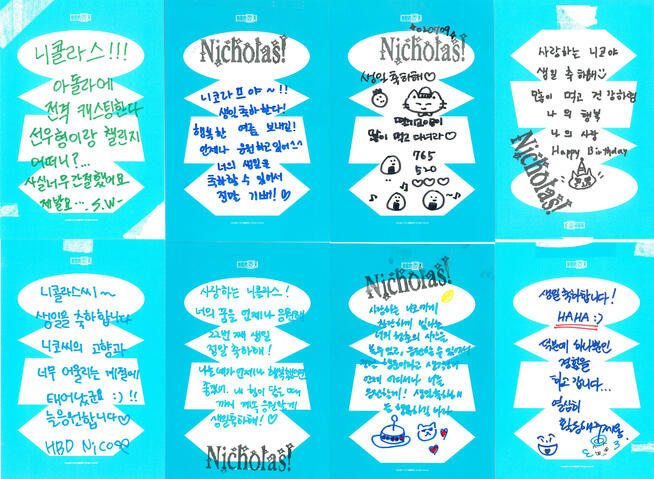 니콜라스!!!
아돌라에
전격 캐스팅한다
선우형이랑 챌린지
어떠니?...
사실너무간절했어요
제발요... S.W-
Nicholas!
니코라프야~!!
생일축하한다!
행복한 여름 보내길!
언제나 응원하고있어^^
너의 생일을
축하할 수 있어서
정말 기뻐!♡
Nicholas!
생일축하해♡
많이 먹고다녀라♡
765
520
사랑하는 니코야
생일 축하해
많이 먹고 건강하렴
나의 행복
나의 사랑
Happy Birthday
Nicholas!
니콜라스씨~
생일을 축하합니다
니코씨의 고향과
너무 어울리는 계절에
태어났군요 :) !!
늘응원합니다♡
HBD Nico
사랑하는 니콜라스!
너의 꿈을 언제나 응원해
22번째 생일
정말 축하해!
나는 네가 언제나 행복했으면
좋겠어. 내 힘이 닿는 데
까지 계속 응원할게
생일축하해!♡
Nicholas!
Nicholas!
사랑하는 니코에게
너와 함께
생일축하해
생일 축하합니다!
HAHA :)
하나뿐인
경험을
하고 갑니다...
열심히